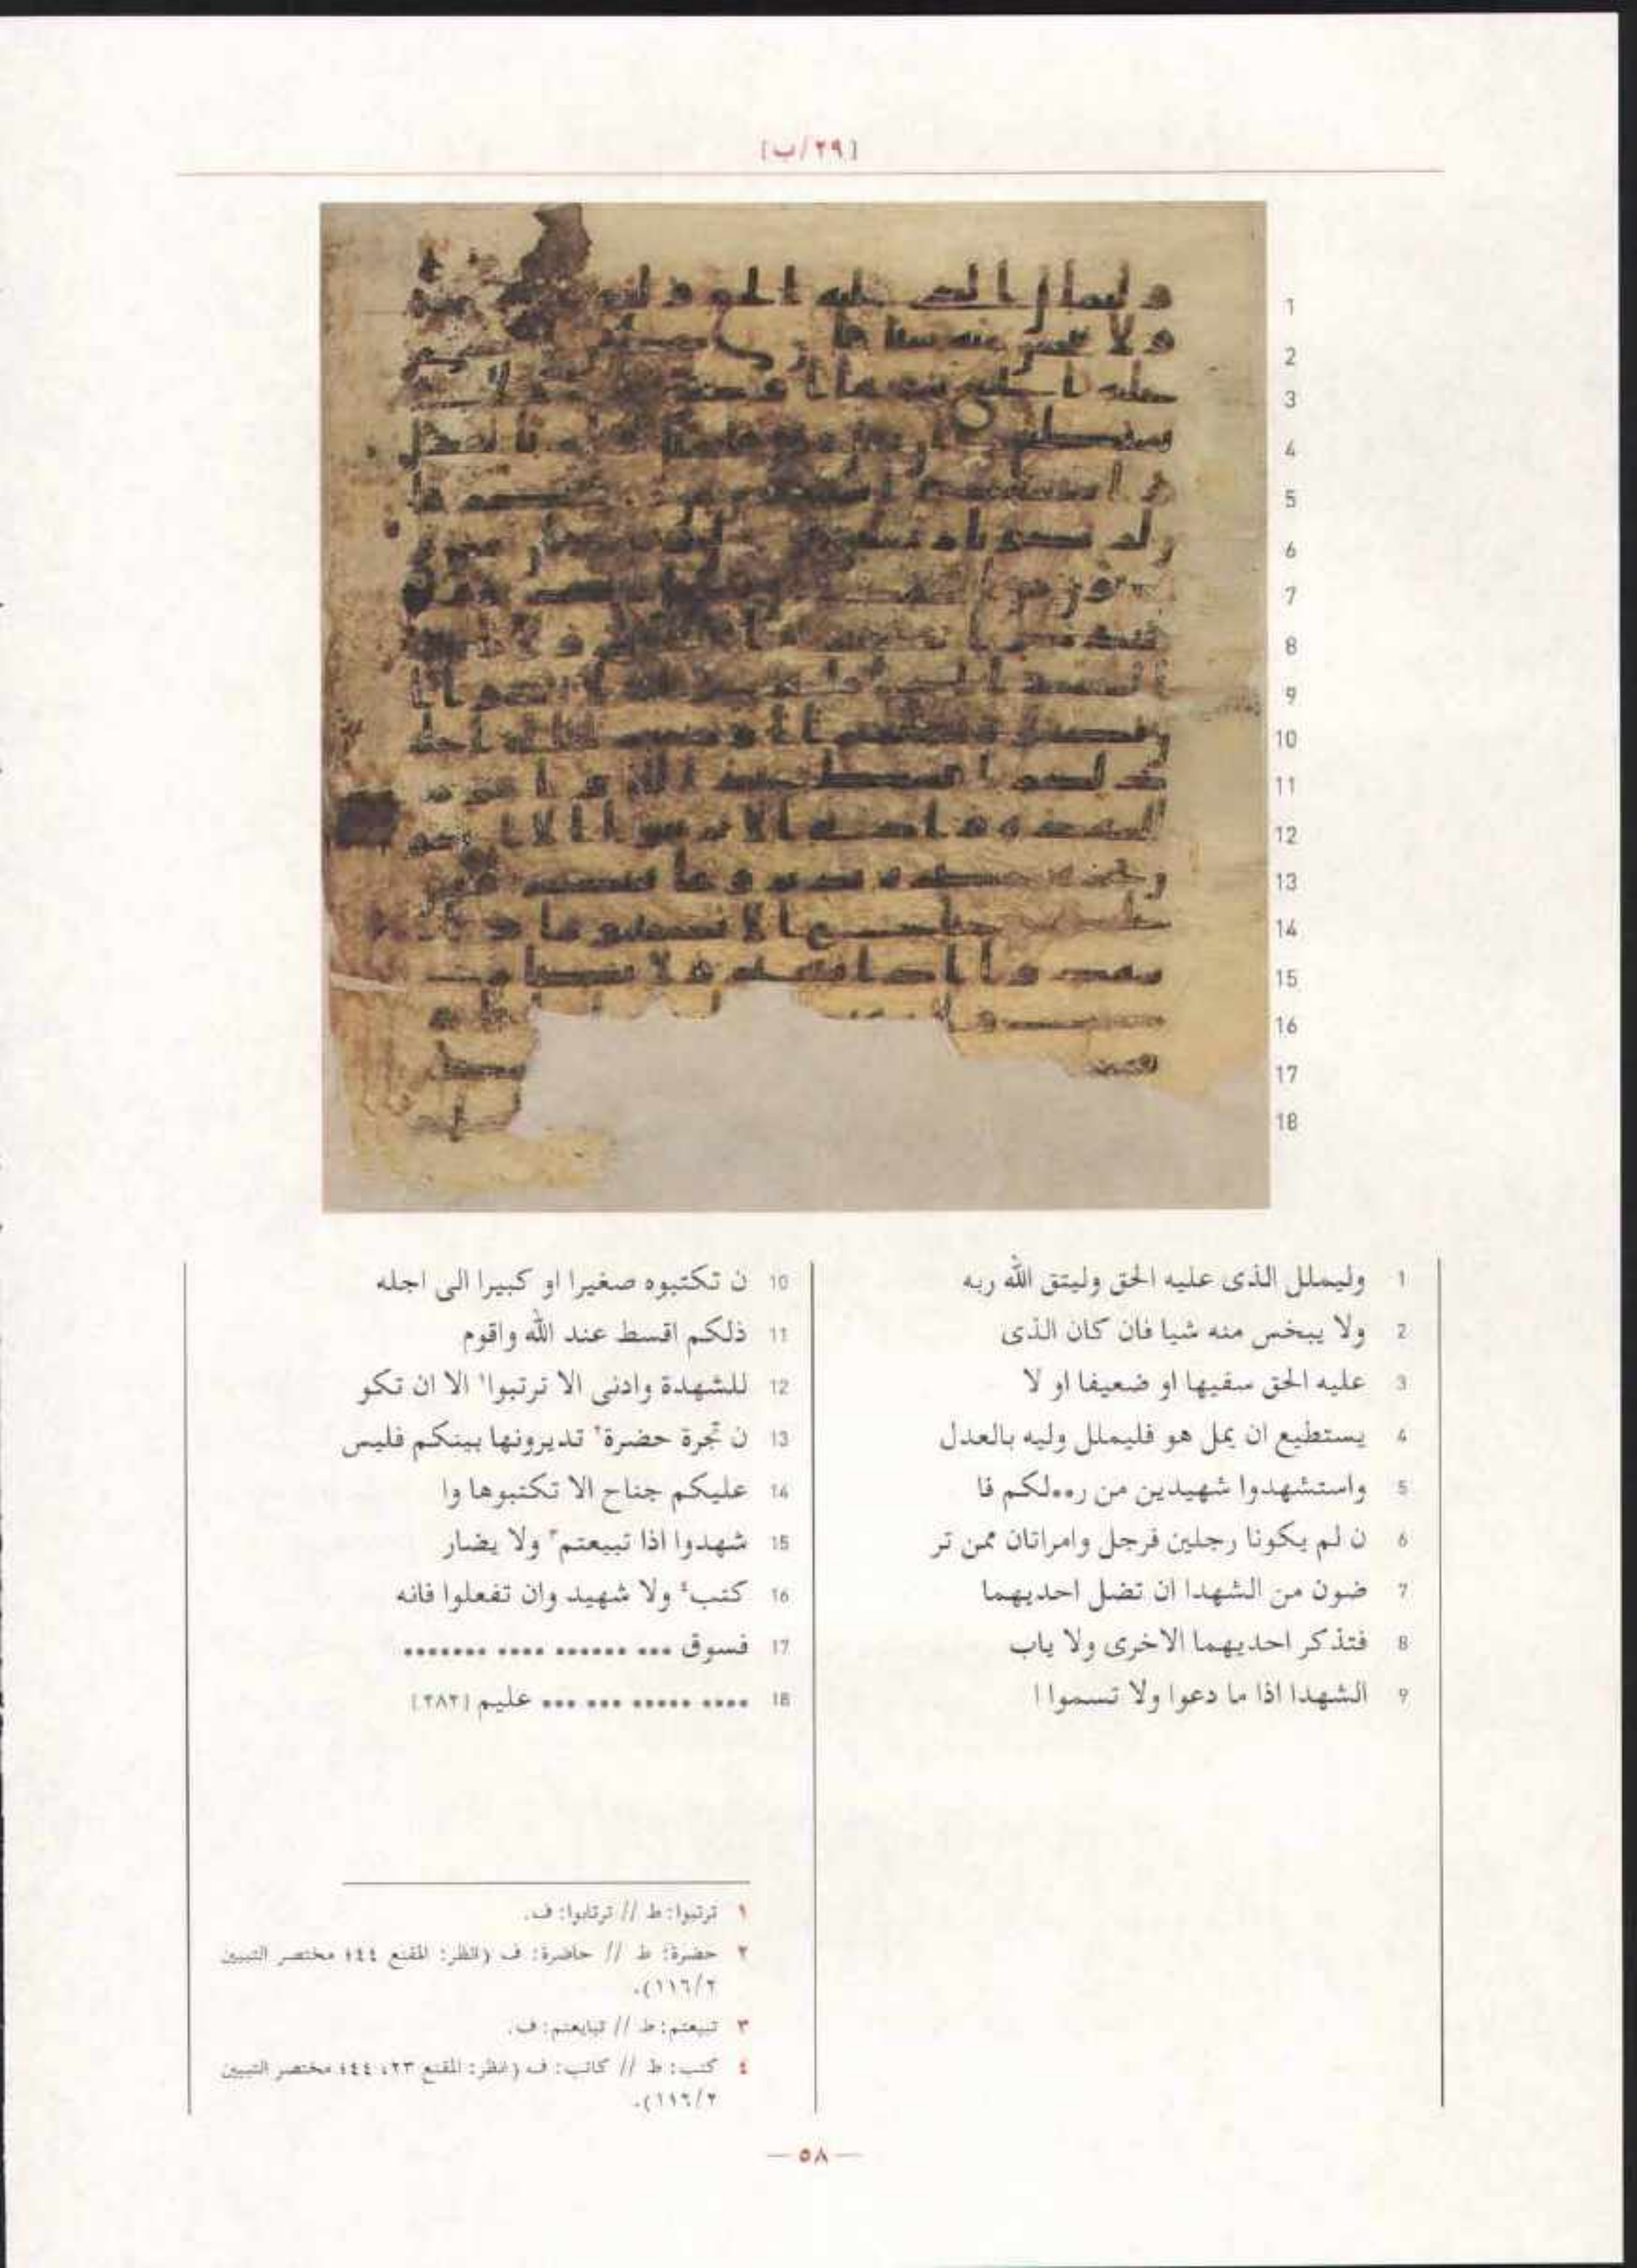 [٢٩/ب]
1 وليملل الذى عليه الحق وليتق الله ربه
2 ولا يبخس منه شيا فان كان الذى
3 عليه الحق سفيها او ضعيفا او لا
4 يستطيع ان يمل هو فليملل وليه بالعدل
5 واستشهدوا شهيدين من ر••لكم فا
6 ن لم يكونا رجلين فرجل وامراتان ممن تر
7 ضون من الشهدا ان تضل احديهما
8 فتذكر احديهما الاخرى ولا ياب
9 الشهدا اذا ما دعوا ولا تسموا ا
10 ن تكتبوه صغيرا او كبيرا الى اجله
11 ذلكم اقسط عند الله واقوم
12 للشهدة وادنى الا ترتبوا١ الا ان تكو
13 ن تجرة حضرة٢ تديرونها بينكم فليس
14 عليكم جناح الا تكتبوها وا
15 شهدوا اذا تبيعتم٣ ولا يضار
16 كتب٤ ولا شهيد وان تفعلوا فانه
17 فسوق ••• •••••• •••• •••••••
18 •••• ••••• ••• ••• عليم [٢٨٢]
١ ترتبوا: ط // ترتابوا: ف.
٢ حضرة: ط // حاضرة: ف (انظر: المقنع ٤٤؛ مختصر التبيين
٢/١١٦).
٣ تبيعتم: ط // تبايعتم: ف.
٤ كتب: ط // كاتب: ف (انظر: المقنع ٢٣، ٤٤؛ مختصر التبيين
٢/١١٦).
— ٥٨ —